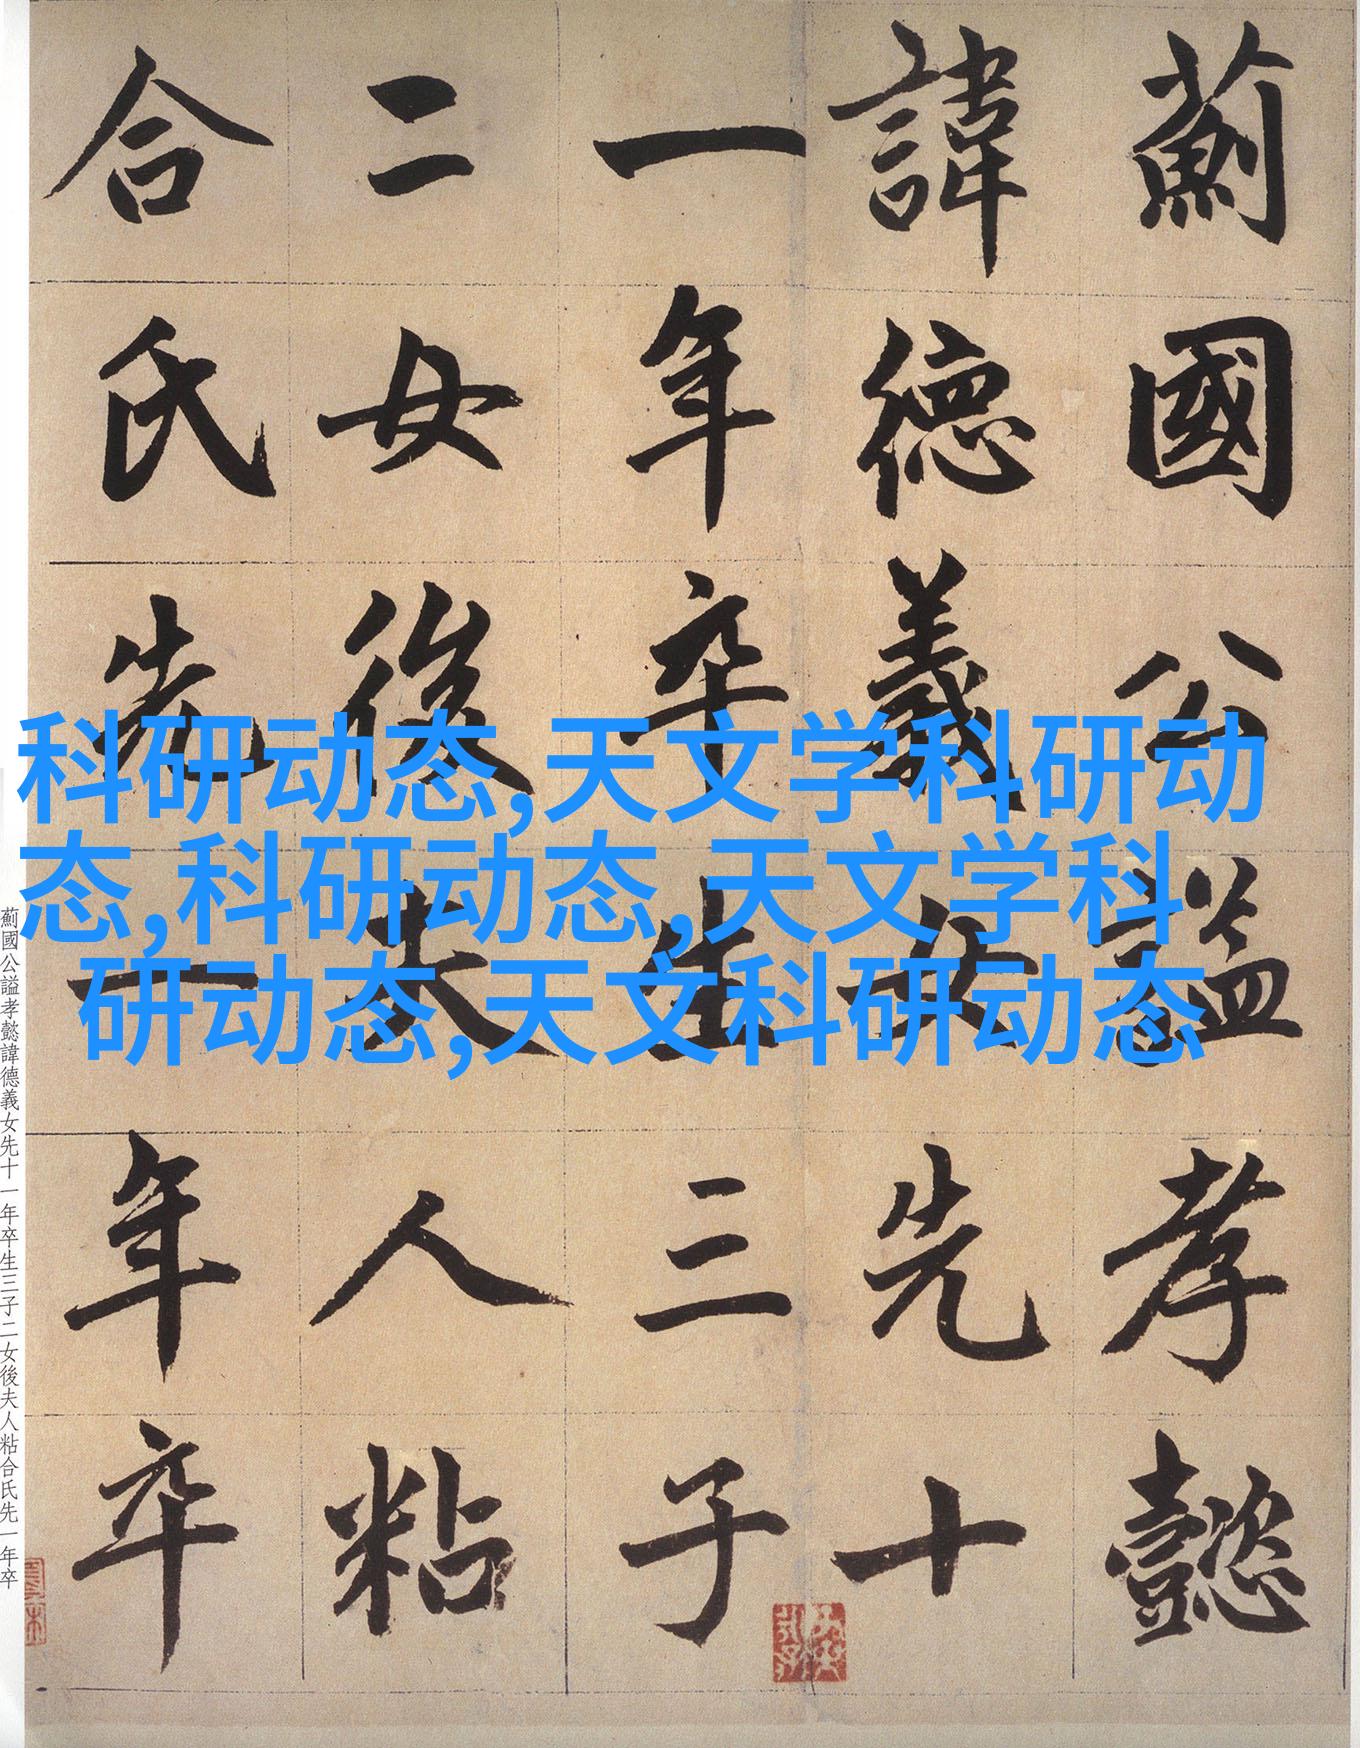 薊國公謚孝懿
諱德義女先十
一年卒生三子
二女後夫人粘
合氏先一年卒
科研动态,天文学科研动
态,科研动态,天文学科
研动态,天文科研动态
薊國公謚孝懿諱德義女先十一年卒生三子二女後夫人粘合氏先一年卒